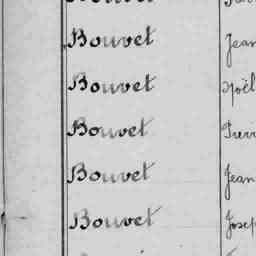 Bouvet Jean
Bouvet Noël
Bouvet
Bouvet Jean
Bouvet Josep